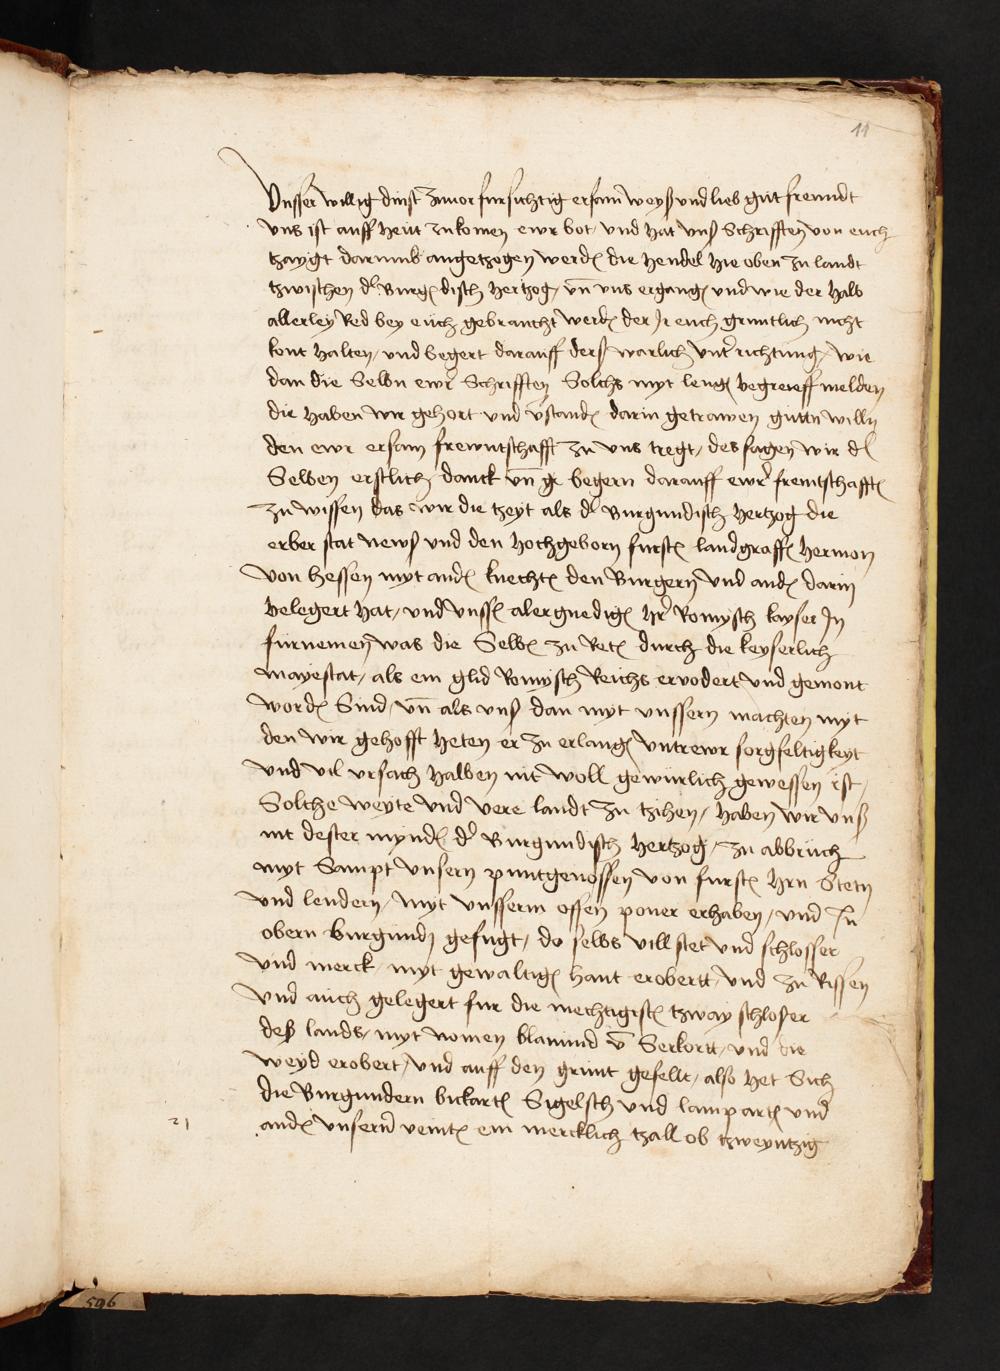 11
Vnsser willig dinst zuuor fursichtig ersam weyß vnd lieb gut freundt
vns ist auff heut zu komen ewr bot vnd hat vnß Schrifften von euch
tzaygt darumb angetzogen werdn die hendel hie oben zu landt
tzwischen d' Burgundisch hertzog vn vns ergangn vnd wie der halb
allerley Red bey euch gebraucht werdn der Jr euch gruntlich nicht
kont halten / vnd begert darauff derß warlich vnt'richtung / wie
dan die Selbn ewr Schrifften Solchs myt lengn begreieff melden
die haben wir gehort vnd v'standn darin getrawen guttn willn
den ewr ersam frewntschafft zu vns tregt / des sagen wir d'
Selben erstlich danck vn begern darauff ewr fremtschafft
zu wissen das wir die tzeyt als d' Burgundisch hertzog die
erber stat newß vnd den hochgeborn furstn landgraffn hermon
von hessen myt andn knechtn den Burgern vnd andn darin
belegert hat / vnd vnssn alergnedign hr Romysch kayser Jn
furnemen was die Selbn zu Retn durch die keyserlich
mayestat / als ein glid Romysch Reichs ervodert vnd gemont
wordn Sind / vn als vnß dan myt vnssern machten myt
den wir gehofft heten er zu erlangn vntrewr sorgfeltigkeyt
vnd vil vrsach halben nit woll gewurlich gewessen ist /
Solche weyte vnd vere landt zu tzihen / haben wir vnß
nit dester myndn d' Burgundisch hertzog / zu abbruch
myt Sampt vnsern puntgenossen von furstn hrn Stetn
vnd lendern / myt vnsserm offen paner erhaben / vnd Jn
obern burgundn gefugt / do selbs vill stet vnd schlosser
vnd merck myt gewaltign hant erobertt / vnd zu Rissen
vnd auch gelegert fur die mechtigistn tzway schloser
deß lands / myt nomen blamund v Serkortt / vnd die
weyd erobert / vnd auff den grunt gefellt / also het Sich
die Burgundern bickartn Sigelsch vnd lampartn vnd
andn vnsern veintn ein mercklich tzall ob tzweyntzig
21
596